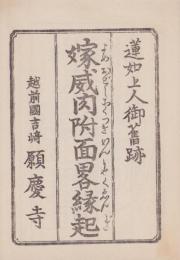 蓮如上人御舊跡
嫁威肉附面畧縁起
よめおどしにくつきめんりやくゑんぎ
越前國吉崎 願慶寺